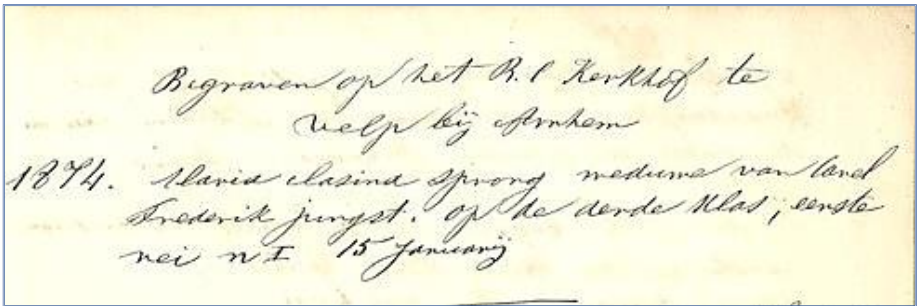 Begraven op het R. C Kerkhof te
velp bij Arnhem
1874. Maria clasina sprong weduwe van Carel
Frederik jungst. op de derde klas, eerste
rei n I 15 Januarij